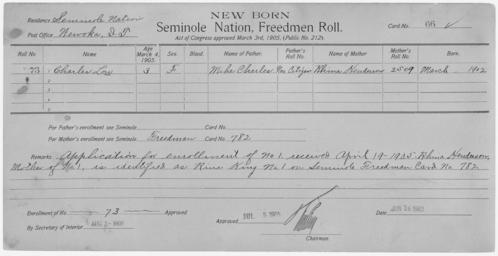 NEW BORN
Seminole Nation, Freedmen Roll.
Residence Seminole Nation
Post Office Wewoka, I.T.
Card No. 66
Act of Congress approved March 3rd, 1905. (Public No. 212).
Roll No. Name Age March 4, 1905. Sex. Blood. Name of Father. Father's Roll No. Name of Mother Mother's Roll No. Born.
73 Charles 3 F Mike Charles Non Citizen Rhina Henderson 2509 March 1902
1
2
3
4
5
For Father's enrollment see Seminole Card No.
For Mother's enrollment see Seminole Freedman Card No. 782
Remarks Application for enrollment of No 1 received April 19-1905. Rhina Henderson,
Mother of No 1, is identified as King No 1 on Seminole Freedman Card No 782
Enrollment of No. 73 Approved Approved
By Secretary of Interior
Chairman